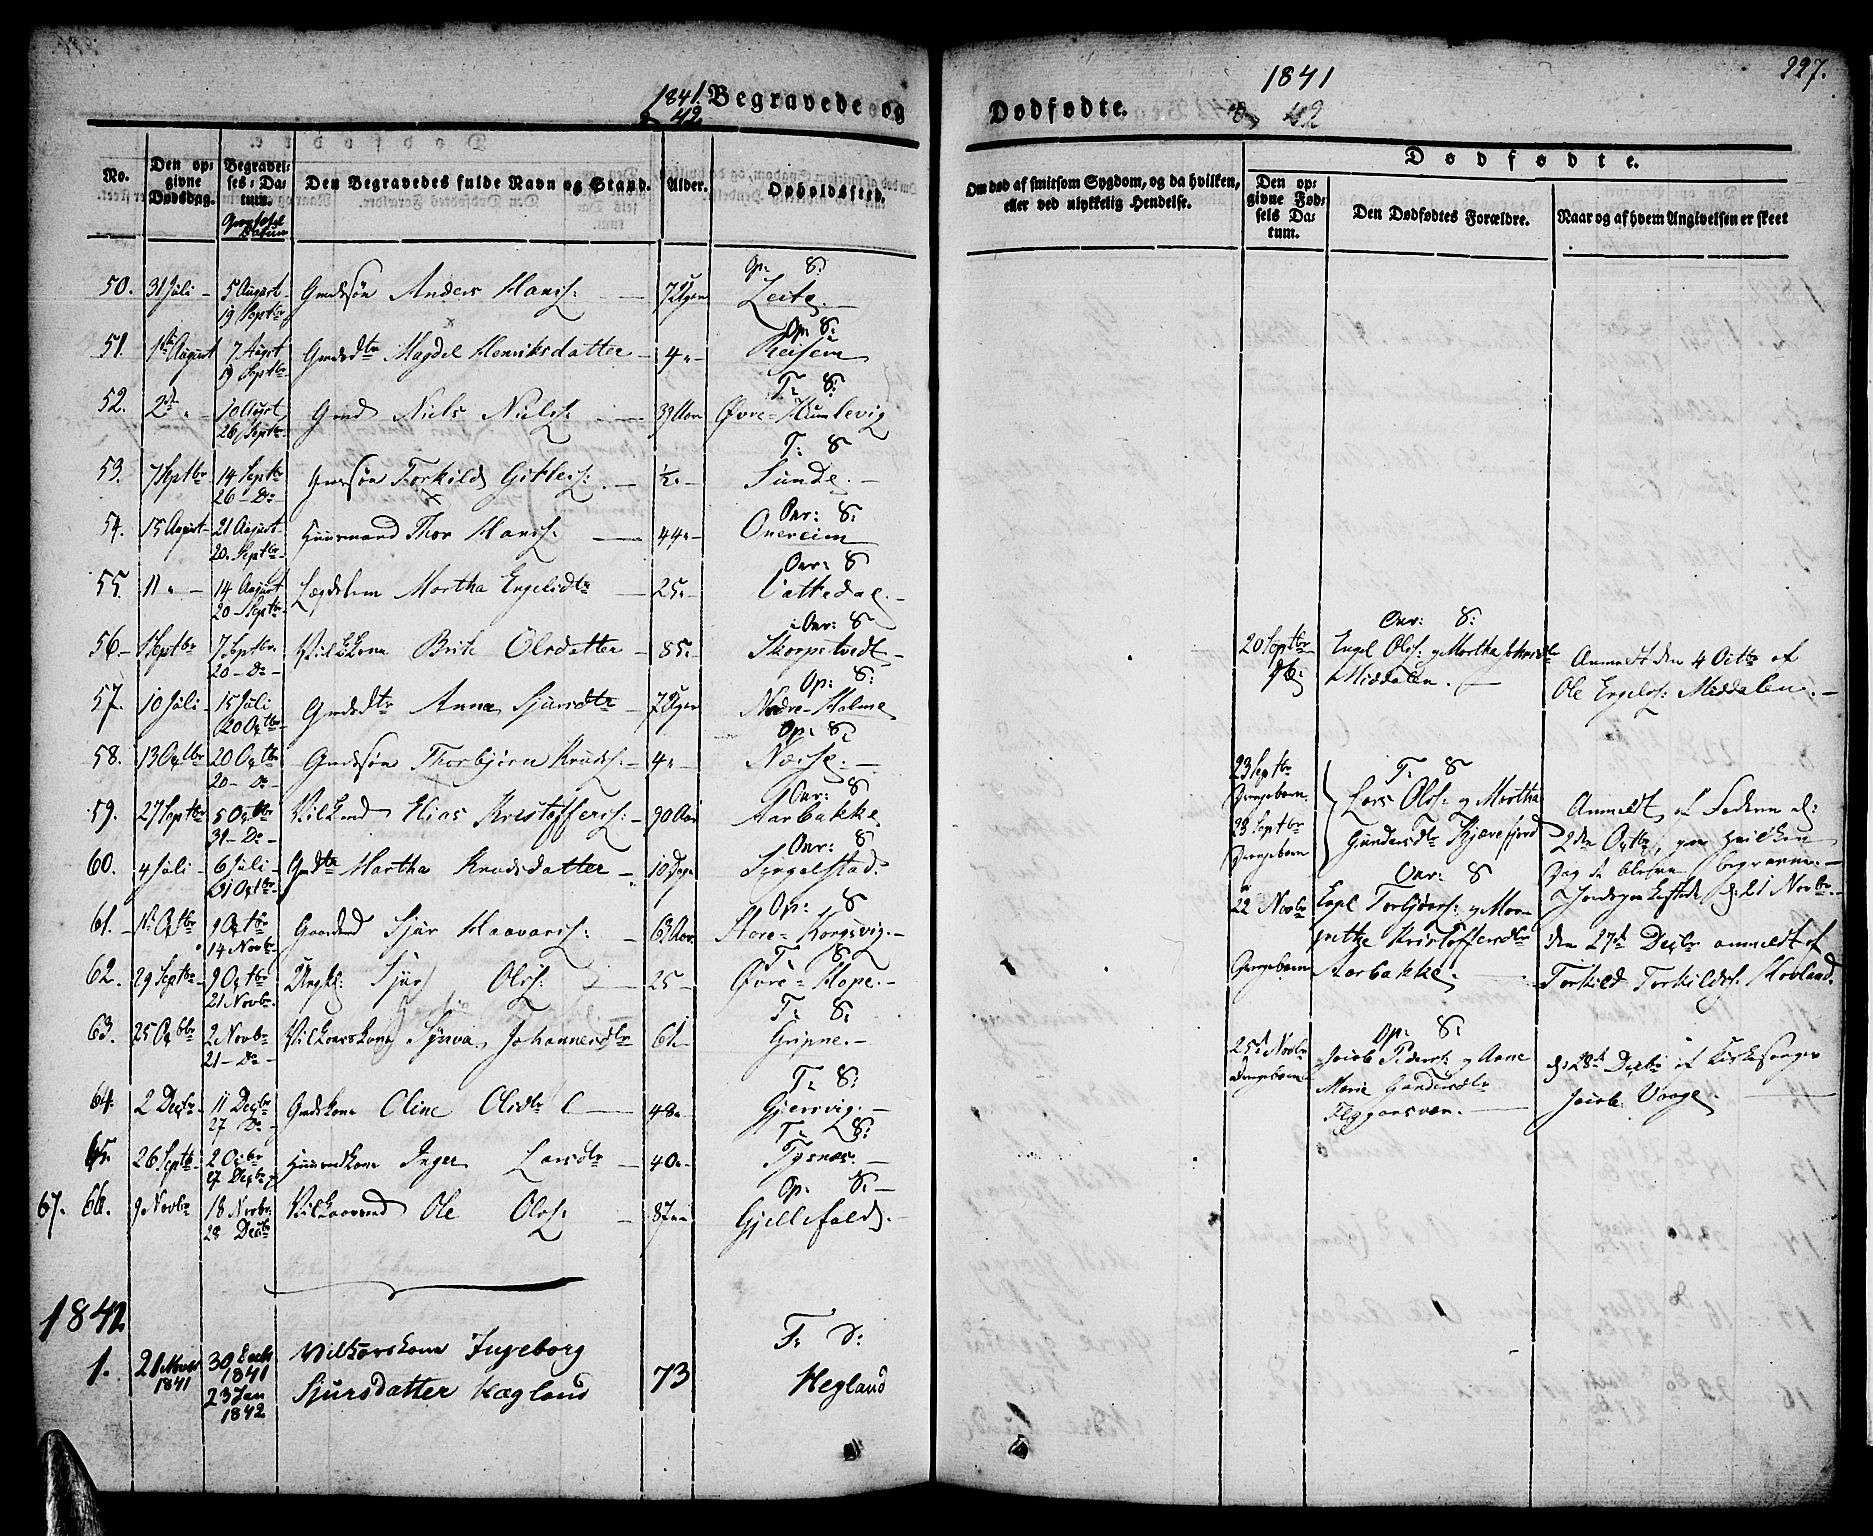 1841. Begravede og
& 42
No.
Den opgivne Dødsdag.
Begravelses-Datum.
Den Begravedes fulde Navn og Stand.
Alder.
Opholdssted.
50. 31 Juli - 5 August 19 Septbr Gmdssøn Anders Hanss: 7 Uger Op: S: Teite.
51. 1ste August 7 Augst 19 Septbr Gmdsdtr Magdel Henriksdatter - 4 " - Op: S: Reisem
52. 2den " - 10 Augst 26 Septbr. Gmd Niels Nielss: 39 Aar T: S: Øvre-Humlevig
53. 7 Septbr 14 Septbr 26 - Do - Torkild Gitless: - ½ " - T: S Sunde. -
54. 15 August - 21 August 20. Septbr Huusmand Thor Hanss: 44 " Onr: S: Onereim
55. 11 " - 14 August 20 Septbr Lægdslem Martha Engelsdtr 25 " Onr: S Vattedal. -
56 - Septbr 7 Septbr: 20 - Do - Vilkkone Brite Olsdatter - 85 " Onr: S Skorpetvedt -
57. 10 Juli - 15 Juli 20 Octbr Gmdsdtr Anna Sjursdtr 7 Uger Op: S: Nedre-Holme
58. 13 Octbr 20 Octbr 20 - Do - Gmdssøn Thorbjørn Knuds: - 4 " - Op: S: Næise. -
59. 27 Septbr 5 Octbr 31 - Do - Vilkmd Elias Kristoffers: - 90 Aar Onr: S Aarbakke
60. 4 Juli - 6 Juli 31 Octbr Gmdtr Martha Knudsdatter - 10 Dage Onr: S Singelstad.
61. 1ste Octbr 9 Octbr 14 Novbr Gaardmd Sjur Haavars: - 63 Aar Op: S Store-Korgsvig. -
62. 29 Septbr 9 Octbr 21 Novbr Ungk: Sjur Olss: 25 - T: S Øvre-Hope. -
63. 25 Octbr 2 Novbr 21 - Do - Vilkaarskone Synva Johannesdtr 61 " T: S: Gripne. -
64. 2 Decbr 11 Decbr 27 Do - Gmdskone Oline Olsdtr 48 " T: S: Gjersvig. -
65. 26 Septbr 2 Ocbr 27 Decbr Huusmdkone Inger Larsdtr - 40 " - T: S: Tysnæs. -
67. 66. 9 Novbr 18 Novbr 28 Decbr Vilkaarsmd Ole Olss: - 87 " Op: S: - Gjellefald. -
1842
1. 21 Novbr 1841 30 Decbr 1841 23 Jan 1842 Vilkorskone Ingeborg
Sjursdatter Hægland 73 T: S: Hegland
Dødfødte. 1841 42 227.
Om død af smitsom Sygdom, og da hvilken,
eller ved ulykkelig Hendelse.
Dødfødte.
Den opgivne Fødsels Datum.
Den Dødfødtes Forældre.
Naar og af hvem Angivelsen er skeet
20 Septbr Onr: S: Engel Olss: og Martha
Middalen. Anmeldt den 4 Octbr af
Ole Engelss: Middalen. -
23 Septbr Drengebarn T: S Lars Olss: og Martha
23 Septbr Drengebarn Gundersdtr Kjærefjord Anmeldt af Faderen d:
2den Octbr, paa hvilken
Dag de bleve begravne. -
22 Novbr Onr: S Torbjørns: og
Kristoffersdtr Aarbakke
den 27de Decbr anmeldt af
Torkild Torkildss: Hovland.
25de Novbr Drengebarn Op: S: Jacob Peders: og Anne
Marie Gundersdtr
Fleggonsvær. den 28de Decbr af Kirkesanger
Jacob Vaage.